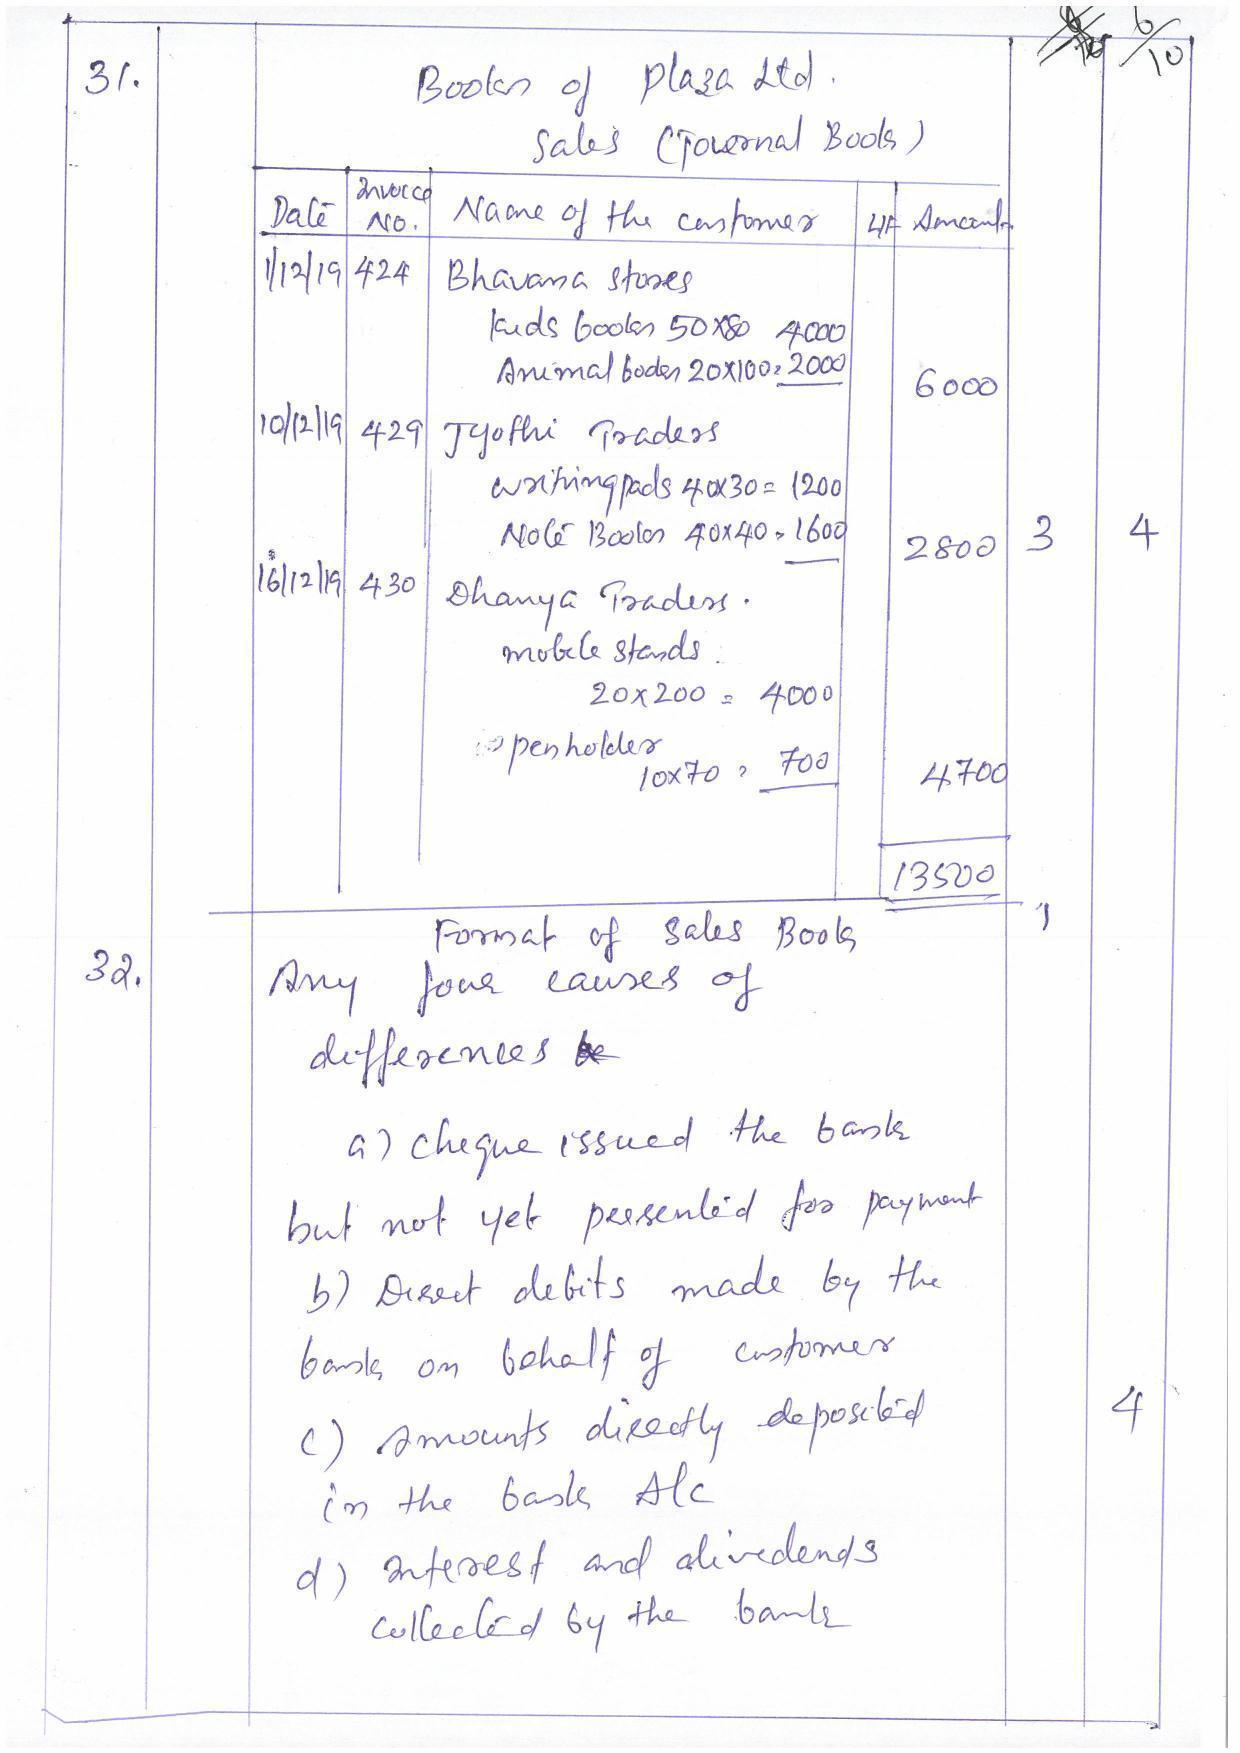 6/10
31.
Books of Plaza Ltd.
Sales (Journal Book)
Date Invoice No. Name of the customer L/F Amount
1/12/19 424 Bhavana Stores
Kids books 50x80 4000
Animal books 20x100= 2000 6000
10/12/19 429 Jyothi Traders
writing pads 40x30 = 1200
Note Books 40x40 = 1600 2800 3 4
16/12/19 430 Dhanya Traders.
mobile stands.
20x200 = 4000
penholder
10x70 = 700 4700
13500
Format of Sales Book 1
32. Any four causes of
differences
a) Cheque issued the bank
but not yet presented for payment
b) Direct debits made by the
bank on behalf of customer
c) Amounts directly deposited 4
in the bank A/c
d) Interest and dividends
collected by the bank